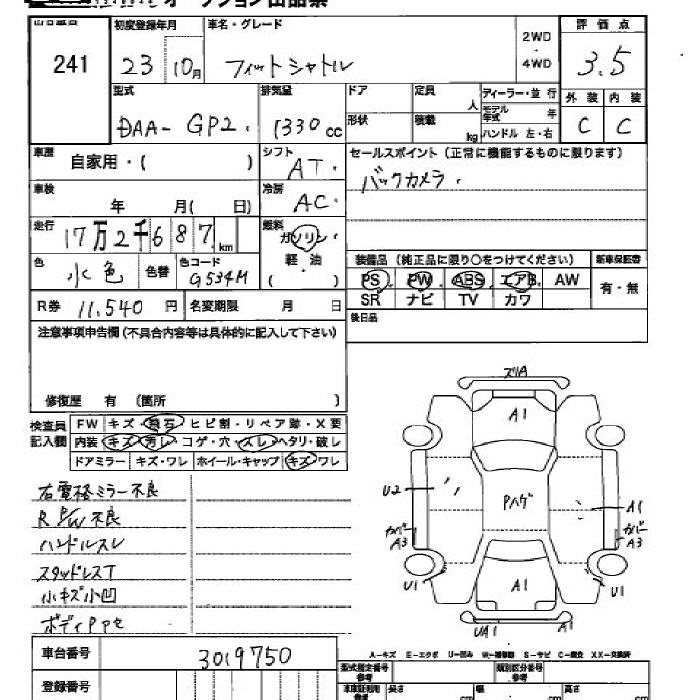 オークション出品票
出品番号 初度登録年月 車名・グレード 2WD・4WD 評価点
241 23 10月 フィットシャトル 3.5
型式 排気量 ドア 定員 人 ディーラー・並行 外装 内装
DAA-GP2. 1330cc 形状 積載 kg モデル年式 年 ハンドル 左・右 C C
車歴 自家用・( ) シフト AT. セールスポイント(正常に機能するものに限ります)
車検 年 月( 日) 冷房 AC. バックカメラ.
走行 17万2千687.km 燃料 ガソリン
色 水色 色替 色コード G534M 軽・油 ( )
装備品(純正品に限り○をつけてください) 新車保証書
PS. PW. ABS. エアB. AW 有・無
SR ナビ TV カワ
R券 11.540 円 名変期限 月 日 後日品
注意事項申告欄(不具合内容等は具体的に記入して下さい)
修復歴 有 (箇所 )
検査員記入欄 FW キズ・飛石・ヒビ割・リペア跡・X要
内装 キズ・汚レ・コゲ・穴・スレ・ヘタリ・破レ
ドアミラー キズ・ワレ ホイール・キャップ キズ・ワレ
右電格ミラー不良
R P/W 不良
ハンドルスレ
スタッドレスT
小キズ小凹
ズリA
A1
U2
Pハゲ
A1
カバー A3
カバー A3
U1
U1
A1
UA1
A1
A-キズ E-エクボ U-凹み W-補修跡 S-サビ C-腐食 XX-交換済
車台番号 3019750
登録番号
型式指定番号 参考 類別区分番号 参考
長さ cm 幅 cm 高さ cm